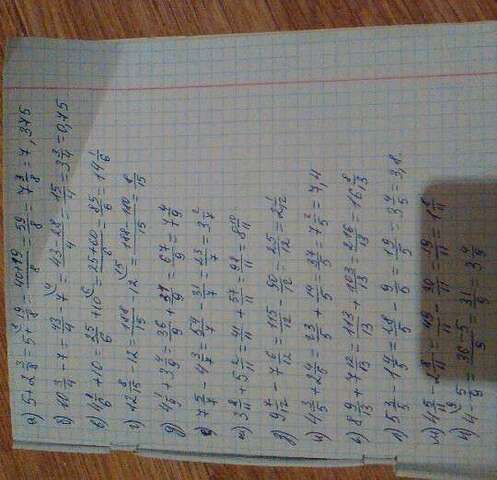 а) 5+2 3/8=5+19/8=(40+19)/8=59/8=7 3/8=7,375
б) 10 3/4-7=43/4-7=(43-28)/4=15/4=3 3/4=0,75
в) 4 1/6+10=25/6+10=(25+60)/6=85/6=14 1/6
г) 12 8/15-12=188/15-12=(188-180)/15=8/15
д) 4 1/9+3 4/9=36/9+31/9=67/9=7 4/9
е) 7 5/7-4 3/7=54/7-31/7=23/7=3 2/7
ж) 3 8/11+5 2/11=41/11+57/11=98/11=8 10/11
з) 9 7/12-7 6/12=115/12-90/12=25/12=2 1/12
и) 4 3/5+2 4/5=23/5+14/5=37/5=7 2/5=7,4
к) 8 9/13+7 12/13=113/13+103/13=216/13=16 8/13
л) 5 3/5-1 4/5=28/5-9/5=19/5=3 4/5=3,8
м) 4 5/11-2 8/11=49/11-30/11=19/11=1 8/11
н) 4-5/9=(36-5)/9=31/9=3 4/9